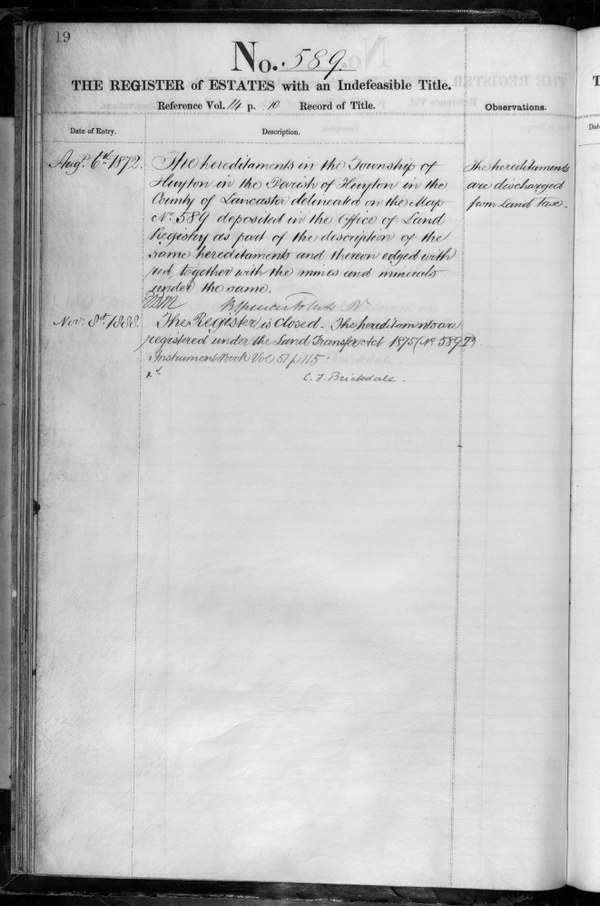 19
No. 589.
THE REGISTER of ESTATES with an Indefeasible Title.
Reference Vol. 14 p. 10 Record of Title.
Observations.
Date of Entry.
Description.
Augt. 6th 1872.
The hereditaments in the Township of
Huyton in the Parish of Huyton in the
County of Lancaster delineated on the Map
No. 589 deposited in the Office of Land
Registry as part of the description of the
same hereditaments and thereon edged with
red, together with the mines and minerals
under the same.
The hereditaments
are discharged
from Land Tax.
Nov. 8th 1888.
The Register is Closed. The hereditaments are
registered under the Land Transfer Act 1875 (No. 589
Instrument Book Vol 51 p 115.
C. F. Brickdale.